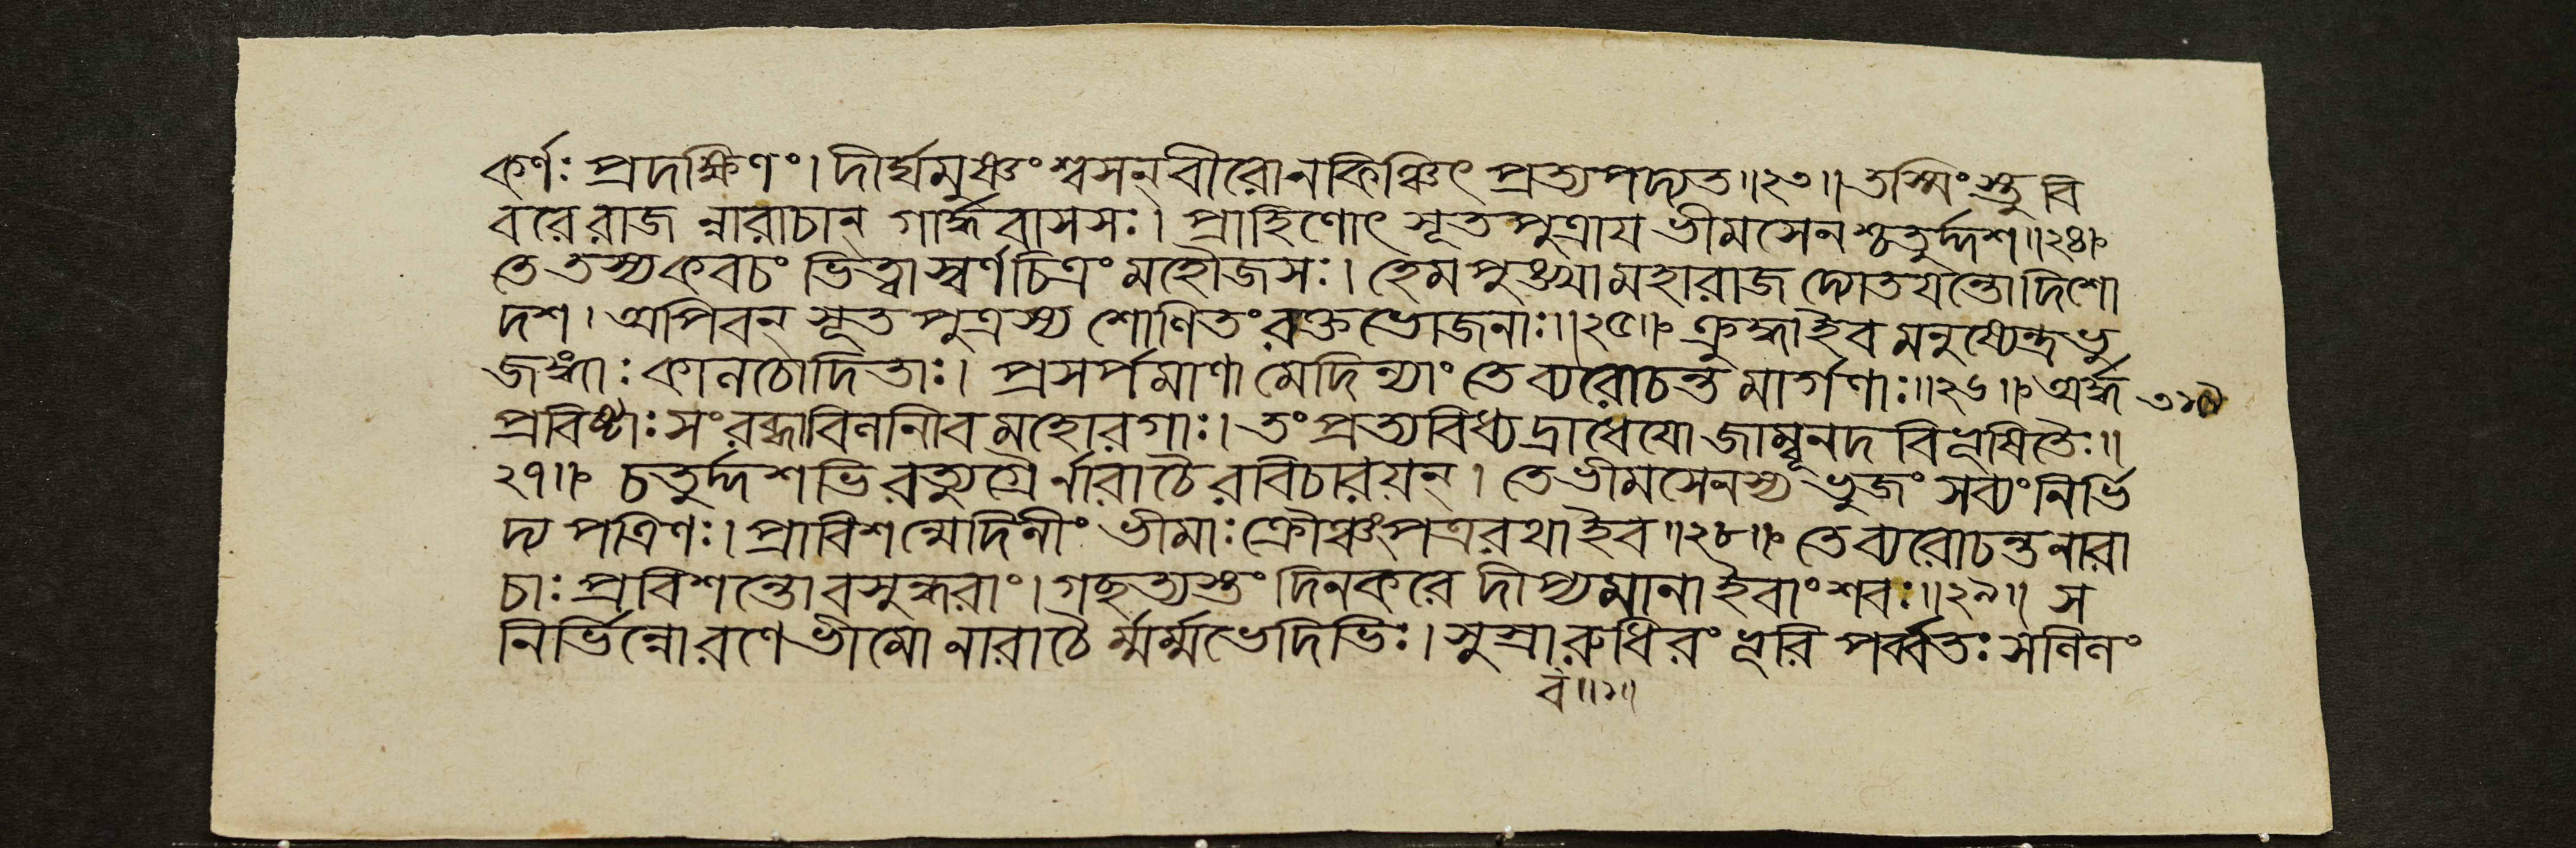 কর্ণঃ প্রদক্ষিণং। দীর্ঘমুষ্ণং শ্বসন্ বীরো ন কিঞ্চিৎ প্রত্যপদ্যত॥২৩॥ তস্মিংস্তু বি
বরে রাজ ন্নারাচান্ গার্দ্ধ্রবাসসঃ। প্রাহিণোৎ সূতপুত্রায ভীমসেনশ্চতুর্দ্দশ॥২৪॥
তে তস্য কবচং ভিত্বা স্বর্ণচিত্রং মহৌজসঃ। হেমপুঙ্খা মহারাজ দ্যোতযন্তো দিশো
দশ। অপিবন্ সূতপুত্রস্য শোণিতং রক্তভোজনাঃ॥২৫॥ ক্রুদ্ধা ইব মনুষ্যেন্দ্র ভু
জঙ্গাঃ কালচোদিতাঃ। প্রসর্পমাণা মেদিন্যাং তে ব্যরোচন্ত মার্গণাঃ॥২৬॥ অর্দ্ধ
প্রবিষ্টাঃ সংরব্ধা বিলানিব মহোরগাঃ। তং প্রত্যবিধ্যদ্রাধেযো জাম্বূনদ বিভূষিতৈঃ॥
২৭॥ চতুর্দ্দশভি রত্যুগ্রৈ র্নারাচৈ রবিচারয়ন্। তে ভীমসেনস্য ভুজং সব্যং নির্ভি
দ্য পত্রিণঃ। প্রাবিশন্মেদিনীং ভীমাঃ ক্রৌঞ্চং পত্ররথা ইব॥২৮॥ তে ব্যরোচন্ত নারা
চাঃ প্রবিশন্তো বসুন্ধরাং। গছত্যস্তং দিনকরে দীপ্যমানা ইবাংশবঃ॥২৯॥ স
নির্ভিন্নো রণে ভীমো নারাচৈ র্ম্মর্ম্মভেদিভিঃ। সুস্রা রুধিরং ভূরি পর্ব্বতঃ সলিলং
ব॥১॥